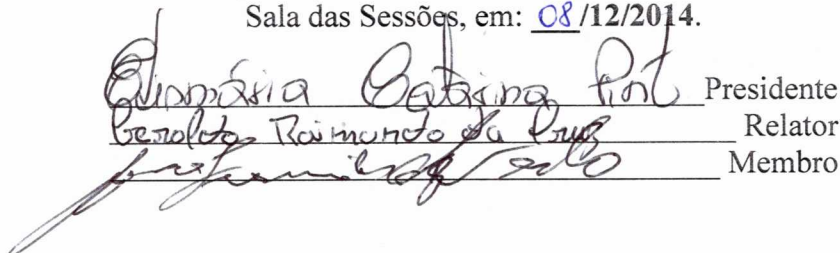 Sala das Sessões, em: 08/12/2014.
Catarina Presidente
Geraldo Raimundo da Cruz Relator
Membro